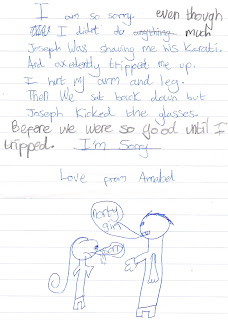 I am so sorry. even though
I didn't do anything much
Joseph Was shawing me his Karati.
And axedently tripped me up.
I hurt My arm and leg.
Then We sat back down but
Joseph Kicked the glasses.
Before we were so good until I
tripped. I'm Sorry
Love from Annabel
Norty
girl
sorry